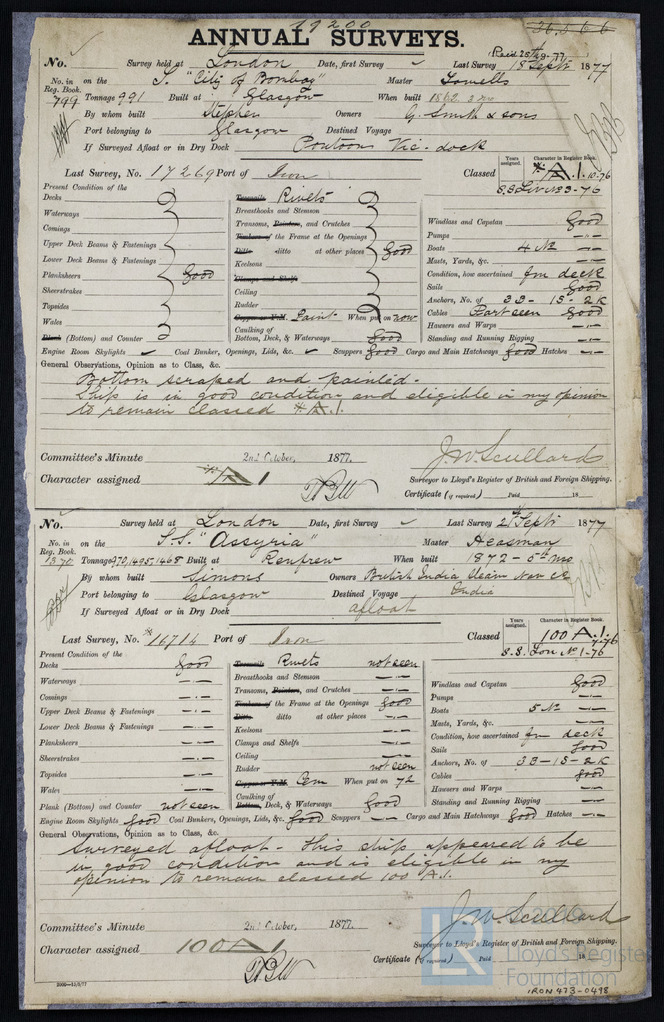 19200
ANNUAL SURVEYS.
Recd 25th 9.77
No. Survey held at London Date, first Survey Last Survey 18 Septr 1877
No. in Reg. Book. 799 on the S. "City of Bombay" Master Lowells
Tonnage 991 Built at Glasgow When built 1862. 3 mo
By whom built Stephen Owners G. Smith & sons
Port belonging to Glasgow Destined Voyage
If Surveyed Afloat or in Dry Dock Pontoon Vic. dock
Last Survey, No. 17269 Port of Iron Classed
Years assigned. Character in Register Book.
A.1. 10.76
Present Condition of the
Decks
Waterways
Comings
Upper Deck Beams & Fastenings
Lower Deck Beams & Fastenings
Planksheers good
Sheerstrakes
Topsides
Wales
Blank (Bottom) and Counter
Treenails Rivets
Breasthooks and Stemson
Transoms, Pointers, and Crutches
Timbers of the Frame at the Openings
Ditto ditto at other places good
Keelsons
Clamps and Shelfs
Ceiling
Rudder
Copper or Y.M. Paint When put on now
Caulking of Bottom, Deck, & Waterways Good
Windlass and Capstan Good
Pumps
Boats 4 No
Masts, Yards, &c.
Condition, how ascertained fm deck
Sails Good
Anchors, No. of 3B - 1S - 2K
Cables Part seen Good
Hawsers and Warps
Standing and Running Rigging
Engine Room Skylights Coal Bunker, Openings, Lids, &c. Scuppers good Cargo and Main Hatchways good Hatches
General Observations, Opinion as to Class, &c.
Bottom scraped and painted.
Ship is in good condition and eligible in my opinion
to remain classed A.1.
Committee's Minute 2nd October, 1877.
Character assigned A 1
J. W. Scullard
Surveyor to Lloyd's Register of British and Foreign Shipping.
Certificate (if required) Paid 18
No. Survey held at London Date, first Survey Last Survey 21 Septr 1877
No. in Reg. Book. on the S.S. "Assyria" Master Heasman
Tonnage 970, 1495, 1468 Built at Renfrew When built 1872 - 5th mo
By whom built Simons Owners British India Steam Nav Co
Port belonging to Glasgow Destined Voyage India
If Surveyed Afloat or in Dry Dock afloat
Last Survey, No. 16714 Port of Iron Classed
Years assigned. Character in Register Book.
100 A.1. 7-76
S.S. Lon No 1-76
Present Condition of the
Decks good
Waterways
Comings
Upper Deck Beams & Fastenings
Lower Deck Beams & Fastenings
Planksheers
Sheerstrakes
Topsides
Wales
Plank (Bottom) and Counter not seen
Treenails Rivets not seen
Breasthooks and Stemson
Transoms, Pointers, and Crutches
Timbers of the Frame at the Openings good
Ditto ditto at other places
Keelsons
Clamps and Shelfs
Ceiling
Rudder not seen
Copper or Y.M. Cem When put on 72
Caulking of Bottom, Deck, & Waterways Good
Windlass and Capstan Good
Pumps
Boats 5 No
Masts, Yards, &c.
Condition, how ascertained fm deck
Sails Good
Anchors, No. of 3B - 1S - 2K
Cables good
Hawsers and Warps
Standing and Running Rigging
Engine Room Skylights good Coal Bunkers, Openings, Lids, &c. good Scuppers Cargo and Main Hatchways good Hatches
General Observations, Opinion as to Class, &c.
Surveyed afloat - This ship appeared to be
in good condition and is eligible in my
opinion to remain classed 100 A.1.
Committee's Minute 2nd October, 1877.
Character assigned 100 A 1
J. W. Scullard
Surveyor to Lloyd's Register of British and Foreign Shipping.
Certificate (if required) Paid 18
Lloyd's Register
Foundation
IRON 473-0498